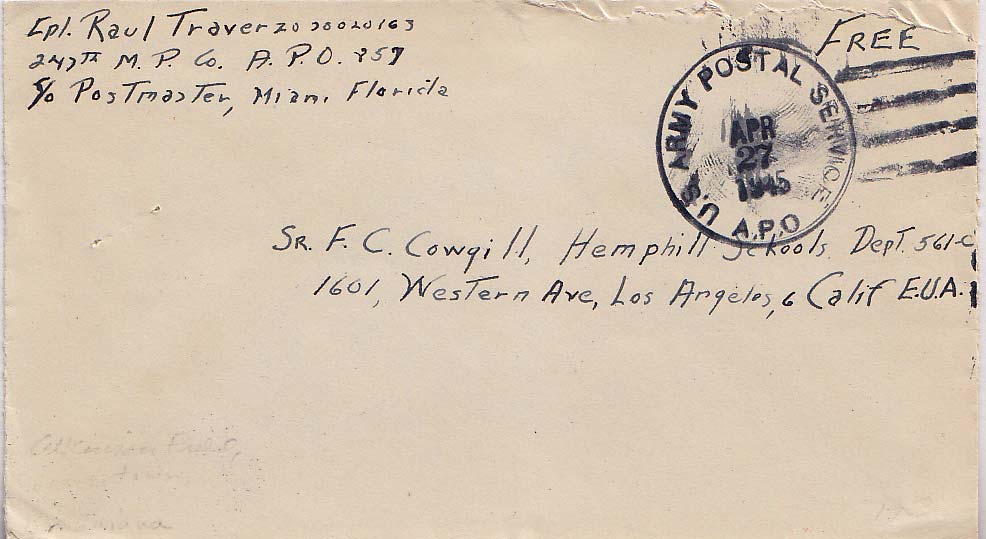 Cpl. Raul Traverzo 30020163
247th M. P. Co. A. P. O. 857
c/o Postmaster, Miami Florida
FREE
U.S. ARMY POSTAL SERVICE
APR
27
1945
A.P.O
Sr. F. C. Cowgill, Hemphill Schools Dept. 561-C
1601, Western Ave, Los Angelos, 6 Calif E.U.A.